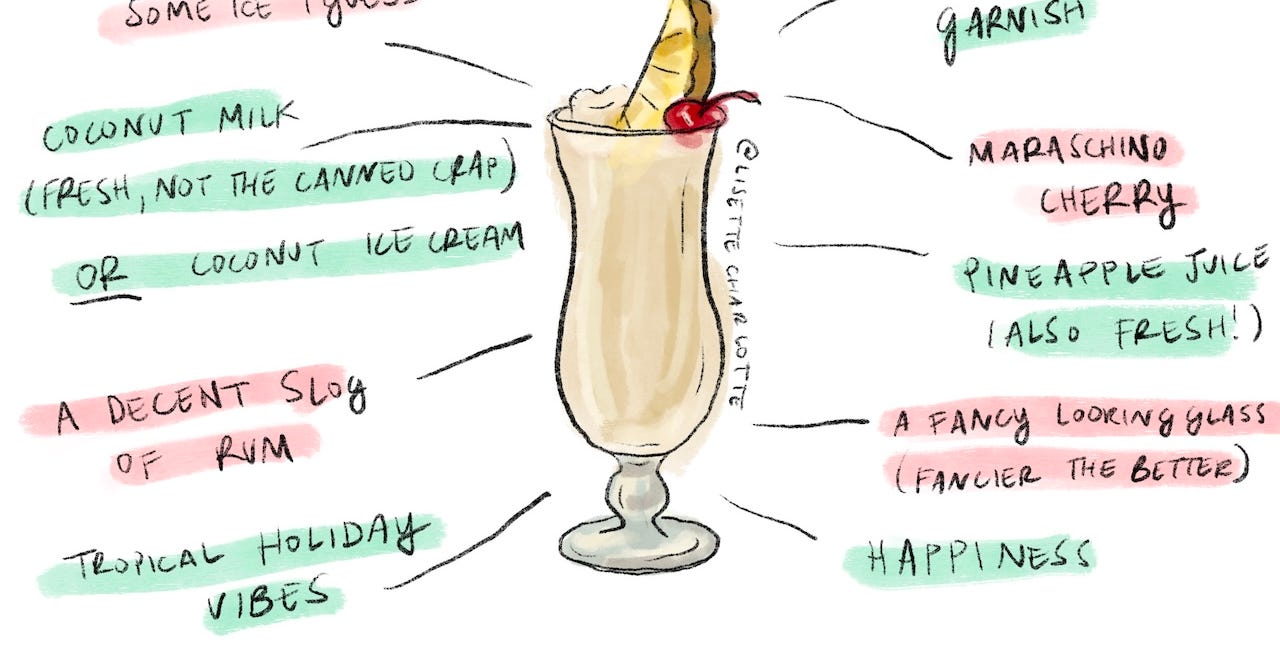 SOME ICE I GUESS
COCONUT MILK
(FRESH, NOT THE CANNED CRAP)
OR COCONUT ICE CREAM
A DECENT SLOG
OF RUM
TROPICAL HOLIDAY
VIBES
@LISETTE CHARLOTTE
GARNISH
MARASCHINO
CHERRY
PINEAPPLE JUICE
(ALSO FRESH!)
A FANCY LOOKING GLASS
(FANCIER THE BETTER)
HAPPINESS